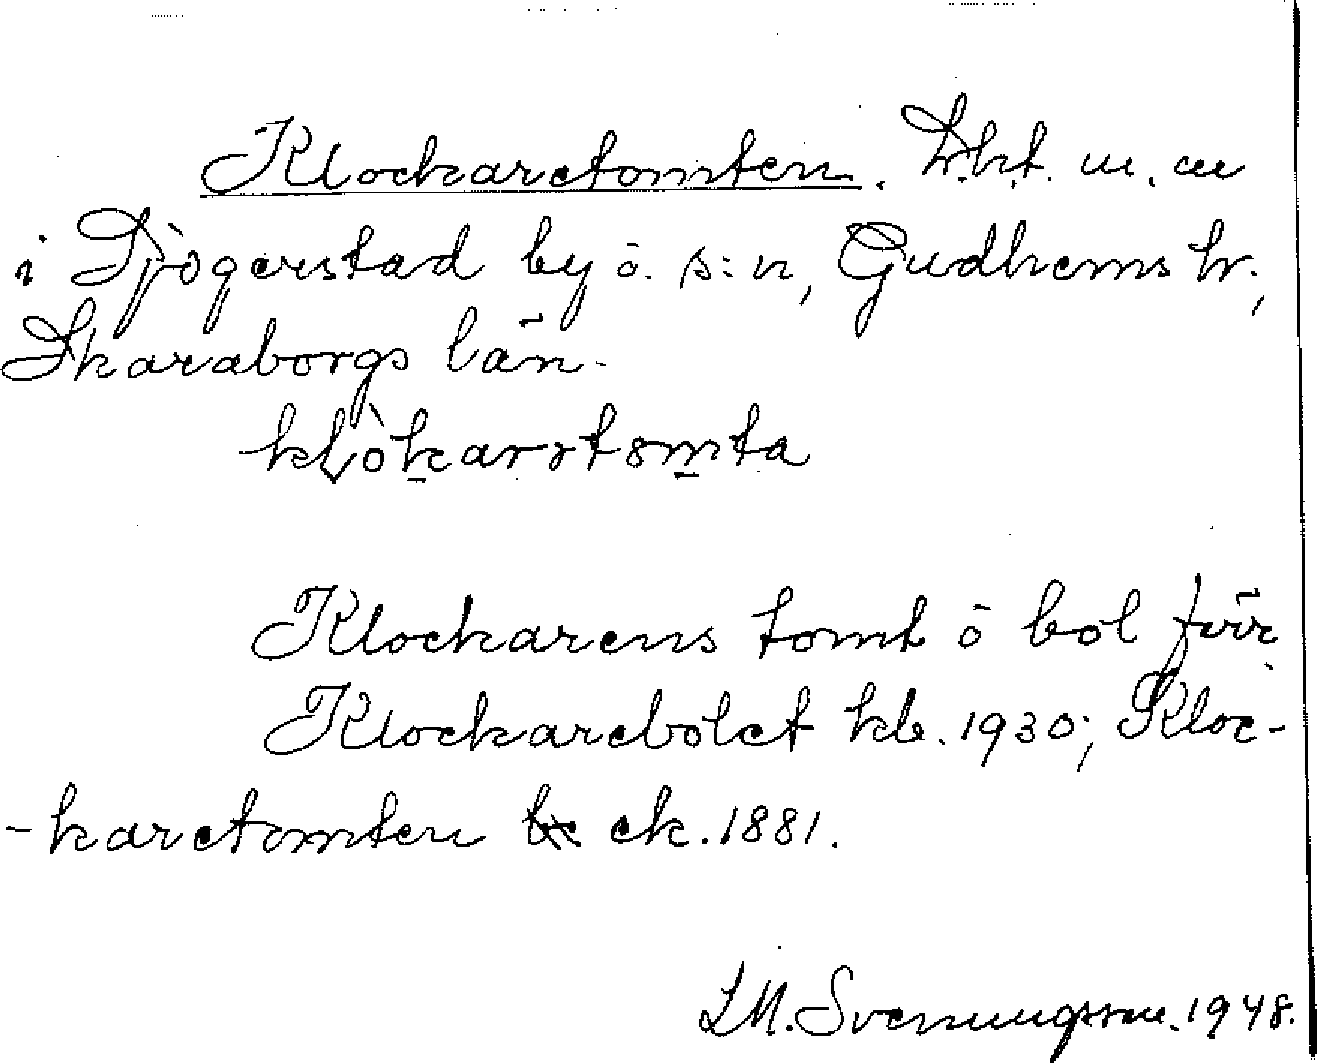 Klockaretomten. Lht. u. ae
i Djogerstad by o. s:n, Gudhems hr.,
Skaraborgs län.
klòkarətomta
Klockarens tomt o bol förr
Klockarebolet kb. 1930; Kloc-
-karetomten ek. 1881.
S.M. Svenungsson. 1948.